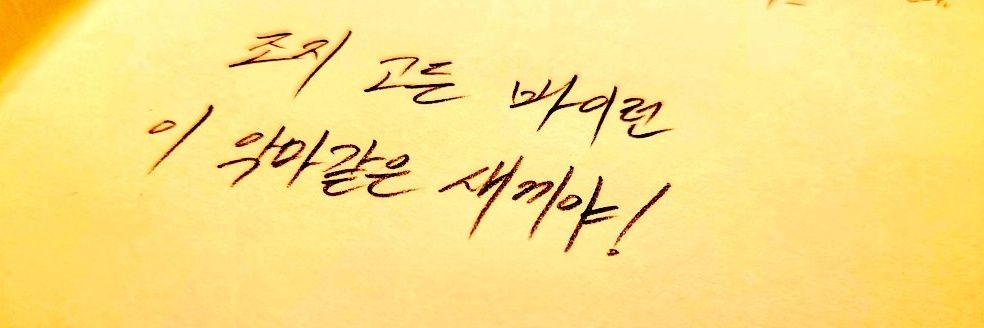 조지 고든 바이런
이 악마같은 새끼야!